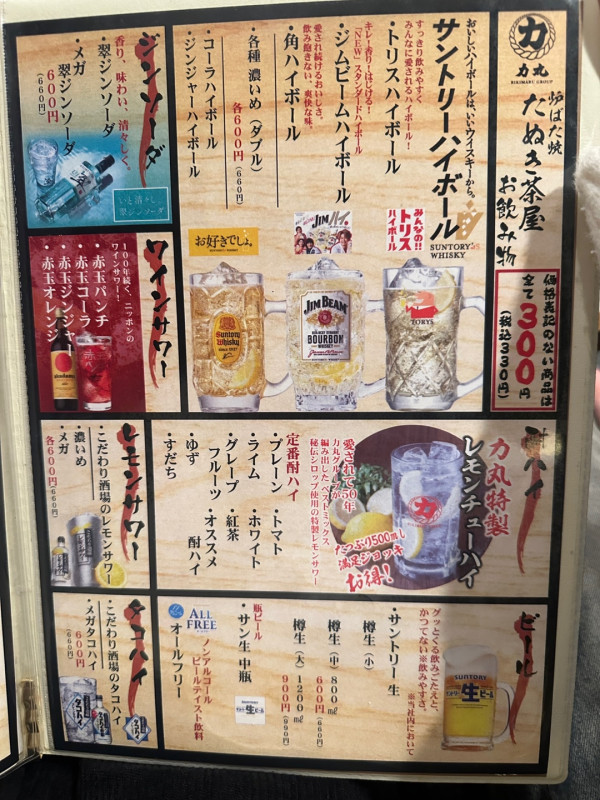 力
力丸
RIKIMARU GROUP
炉ばた焼
たぬき茶屋
お飲み物
価格表記のない商品は
全て300円
(税込330円)
おいしいハイボールは、いいウイスキーから。
サントリーハイボール
SUNTORY WHISKY
すっきり飲みやすく
みんなに愛されるハイボール!
・トリスハイボール
キレ・香り・はじける!
「NEW」スタンダードハイボール
・ジムビームハイボール
愛され続けるおいしさ。
飲み飽きない、爽快な味。
・角ハイボール
・各種 濃いめ(ダブル)
各600円(660円)
・コーラハイボール
・ジンジャーハイボール
みんなの!!
トリス
ハイボール
JIMハイ。
お好きでしょ。
TORYS
JIM BEAM
BOURBON
WHISKEY
Suntory
Whisky
ジンソーダ
香り、味わい、清々しく。
・翠ジンソーダ
・メガ
翠ジンソーダ
600円
(660円)
翠ジンソーダ
ワインサワー
100年続く、ニッポンの
ワインサワー!
・赤玉パンチ
・赤玉コーラ
・赤玉ジンジャー
・赤玉オレンジ
酎ハイ
力丸特製
レモンチューハイ
力
愛されて50年
力丸グループが
編み出したベストミックス
秘伝シロップ使用の特製レモンサワー
たっぷり500耗し
満足ジョッキ
お得!
定番酎ハイ
・プレーン
・トマト
・ライム
・ホワイト
・グレープ
フルーツ
・紅茶
・ゆず
・オススメ
酎ハイ
・すだち
レモンサワー
・こだわり酒場のレモンサワー
・濃いめ
・メガ
各600円(660円)
ビール
グッとくる飲みごたえと、
かつてない※飲みやすさ。
※当社内において
・サントリー生
樽生(小)
樽生(中)800㎖
600円(660円)
樽生(大)1200㎖
900円(990円)
瓶ビール
・サン生 中瓶
SUNTORY
生
ビール
生
ALL
FREE
ノンアルコール
ビールテイスト飲料
・オールフリー
タコハイ
・こだわり酒場のタコハイ
・メガタコハイ
600円
(660円)
タコハイ